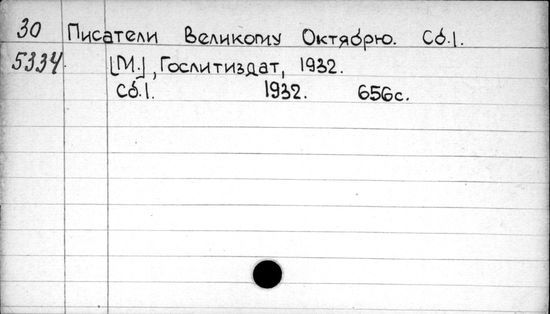 30 Писатели Великому Октябрю. Сб.1.
5334 [М.], Гослитиздат, 1932.
Сб.1. 1932. 656с.